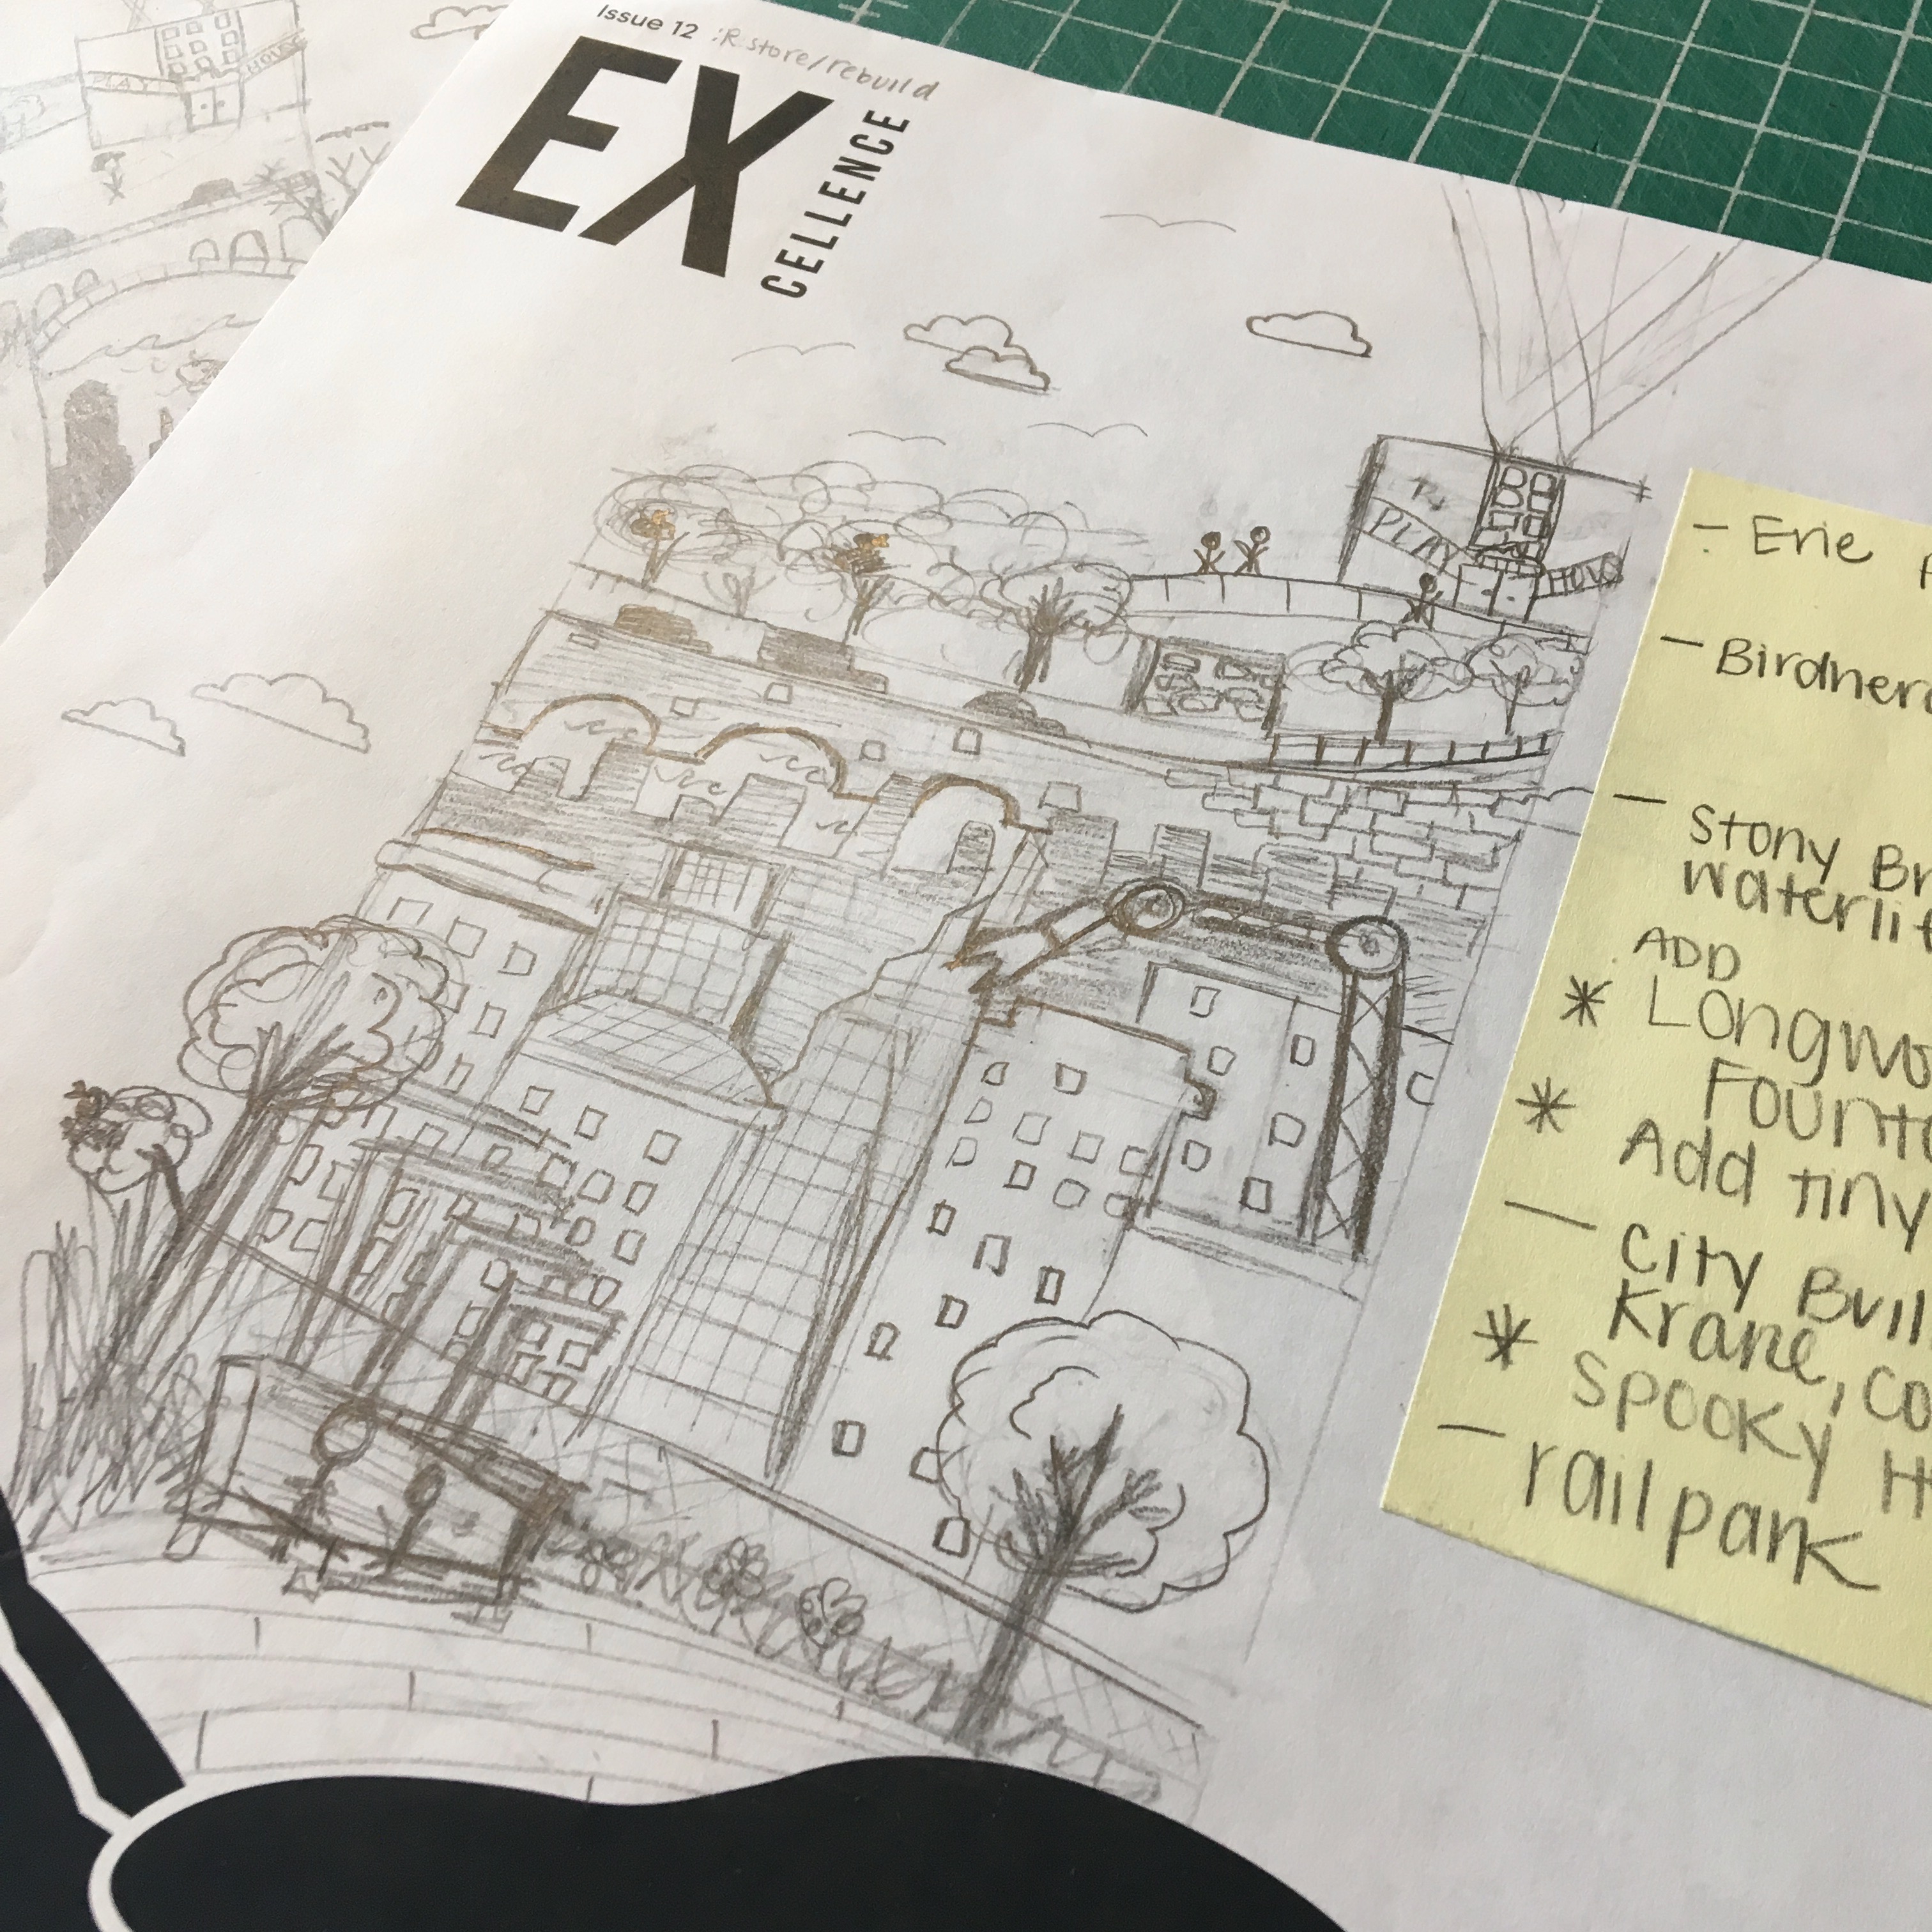 Issue 12 :R.store/rebuild
EX
CELLENCE
PLAY
- Erie
- Birdner
- Stony Br
Waterlit
ADD
* Longwo
Founta
* Add tiny
- City Buil
Krane, Co
* Spooky H
- rail park
PLAY HOUSE